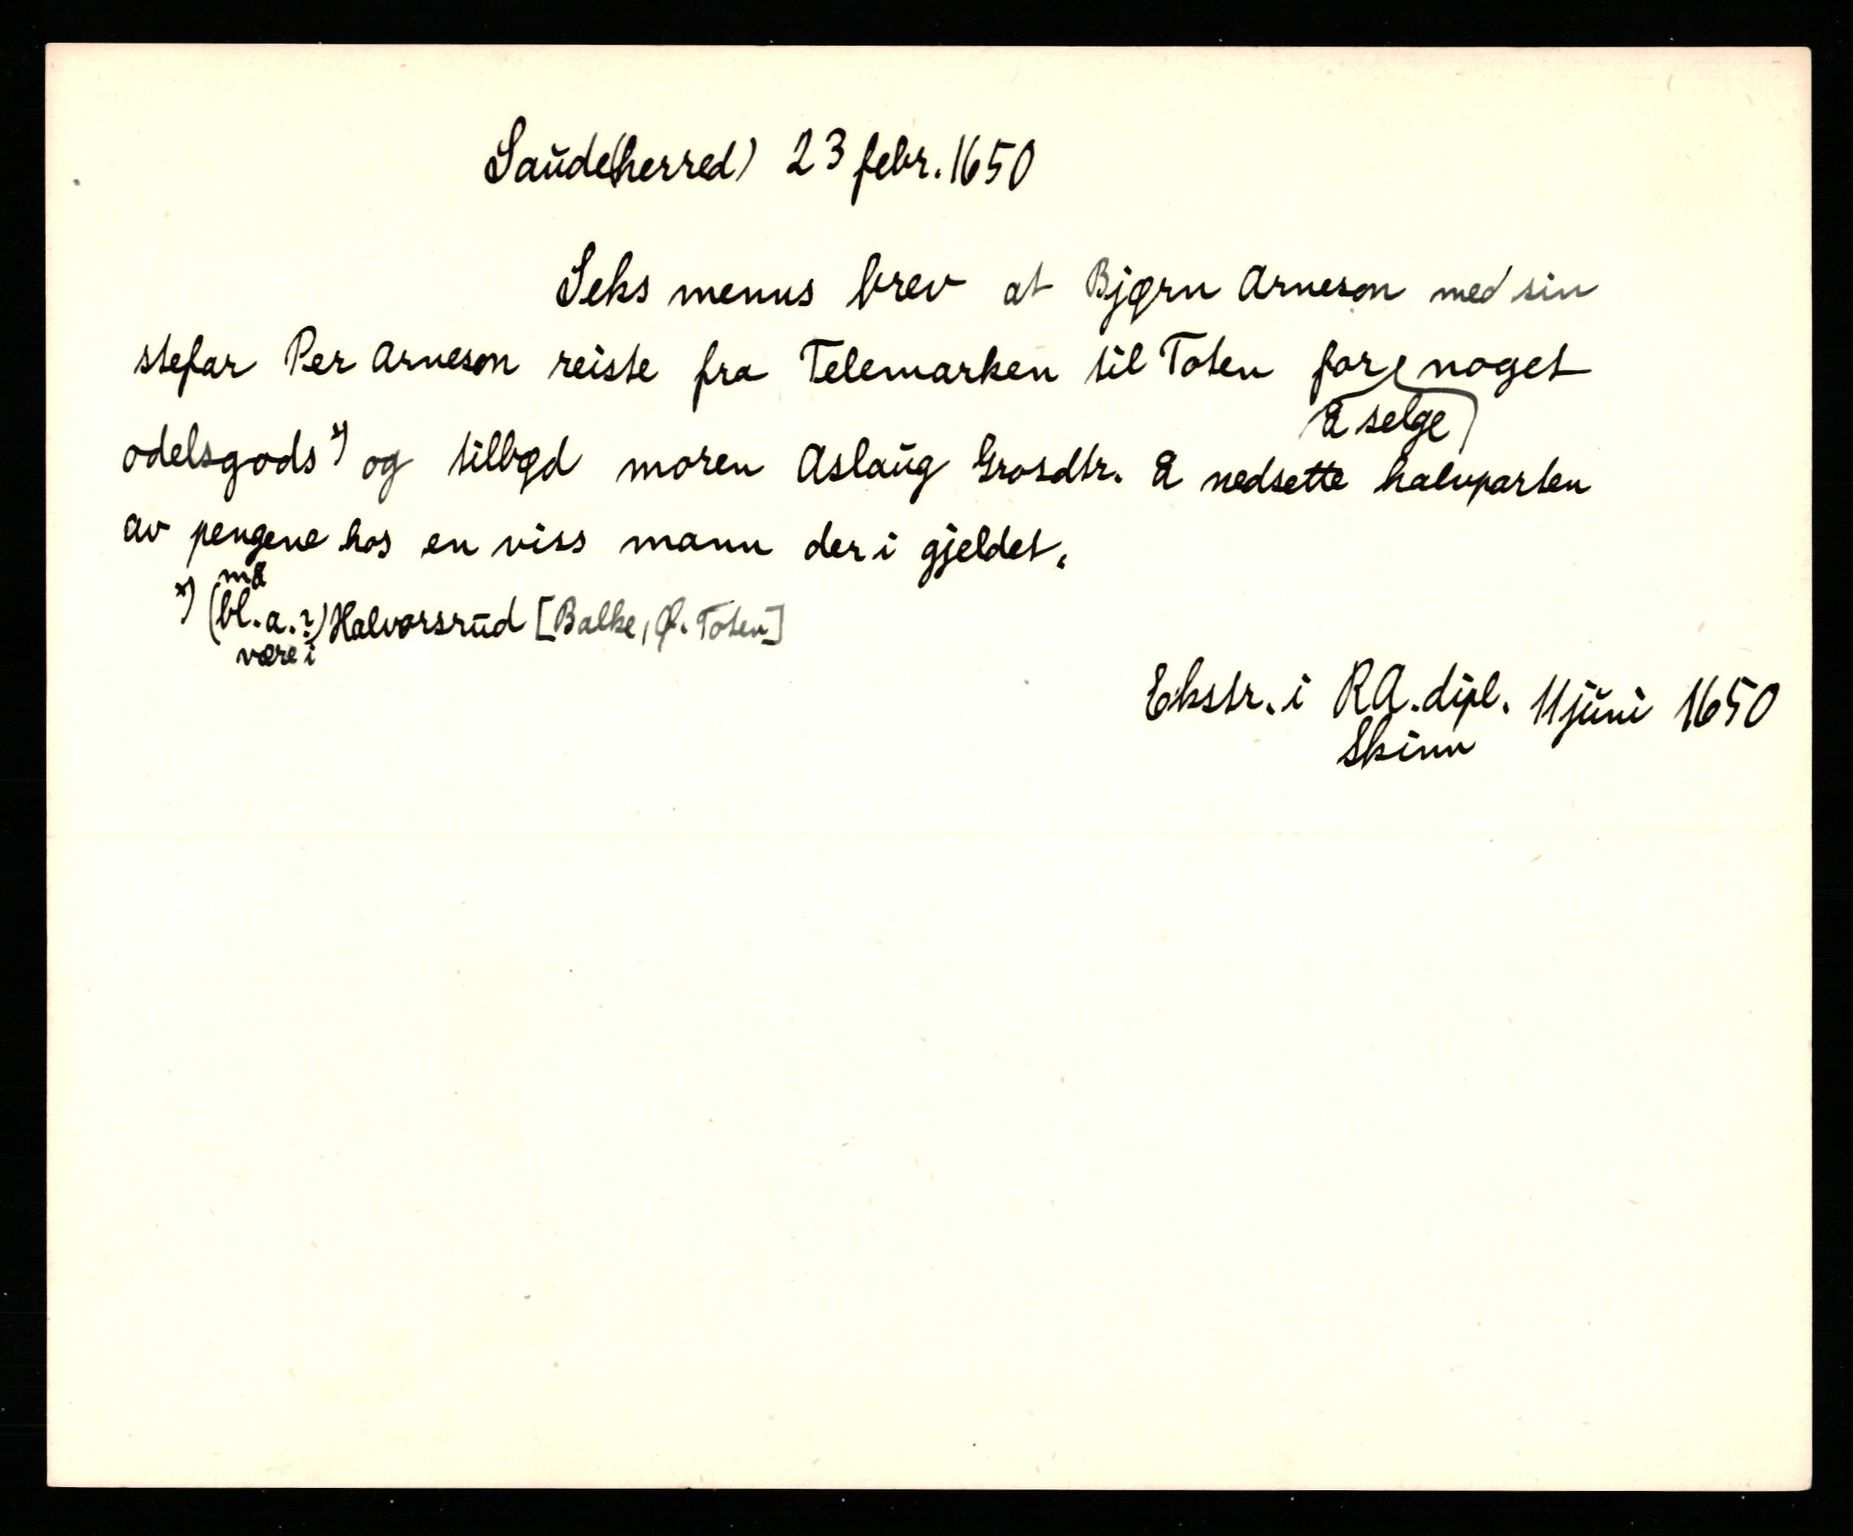 Saude(herred) 23 febr. 1650
Seks menns brev at Bjørn Arneson med sin
stefar Per Arneson reiste fra Telemarken til Toten for noget
å selge
odelsgods x) og tilbød moren Aslaug Grosdtr. å nedsette halvparten
av pengene hos en viss mann der i gjeldet.
må
x) (bl. a. ?) Halvorsrud [Balke, Ø. Toten]
være i
Ekstr. i RA. dipl. 11 juni 1650
Skinn